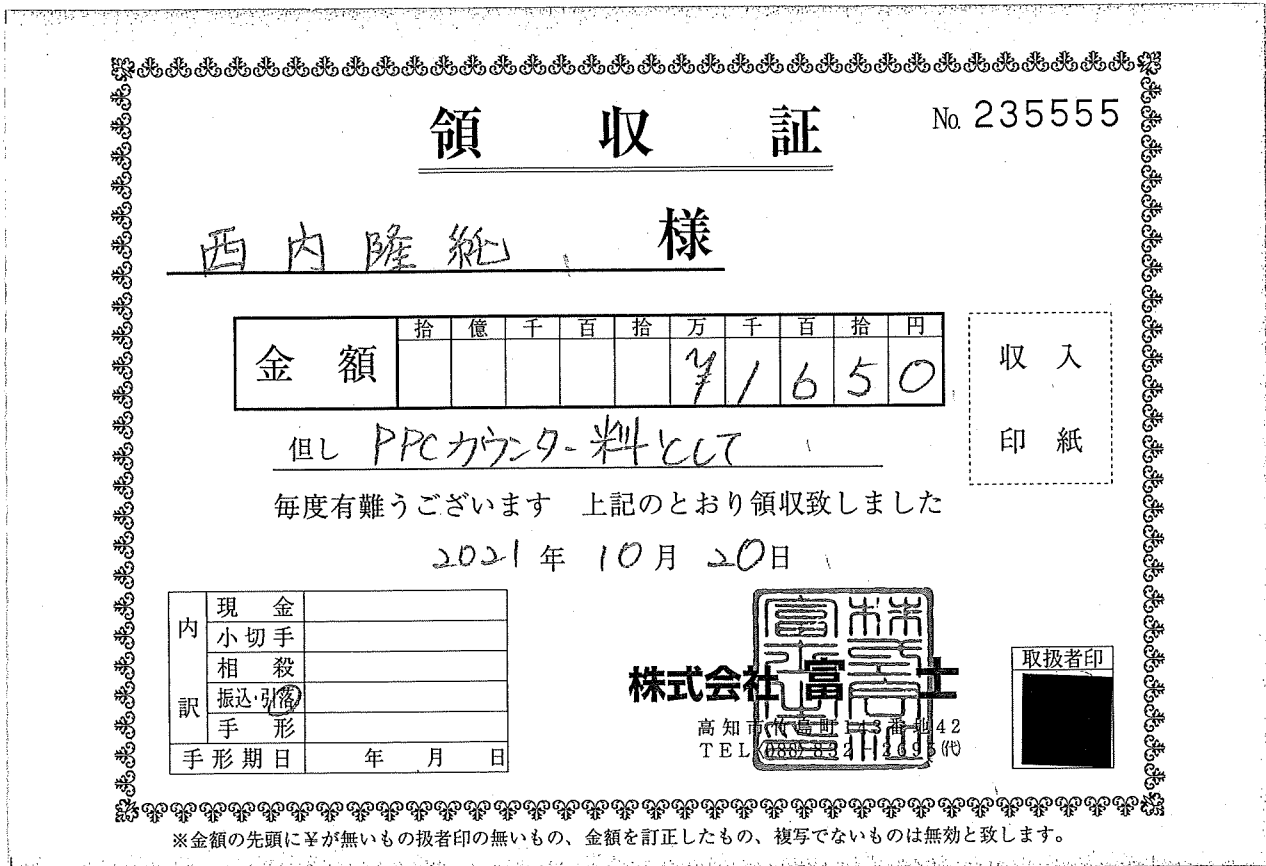 領収証
No. 235555
西内隆紀 様
拾 億 千 百 拾 万 千 百 拾 円
金額 ¥1650
収入
印紙
但し PPCカウンター料として
毎度有難うございます 上記のとおり領収致しました
2021年 10月 20日
内訳
現金
小切手
相殺
振込・引落
手形
手形期日 年 月 日
株式会社 富士
高知市竹島町143番地42
TEL(088)832-2695(代)
取扱者印
※金額の先頭に¥が無いもの扱者印の無いもの、金額を訂正したもの、複写でないものは無効と致します。